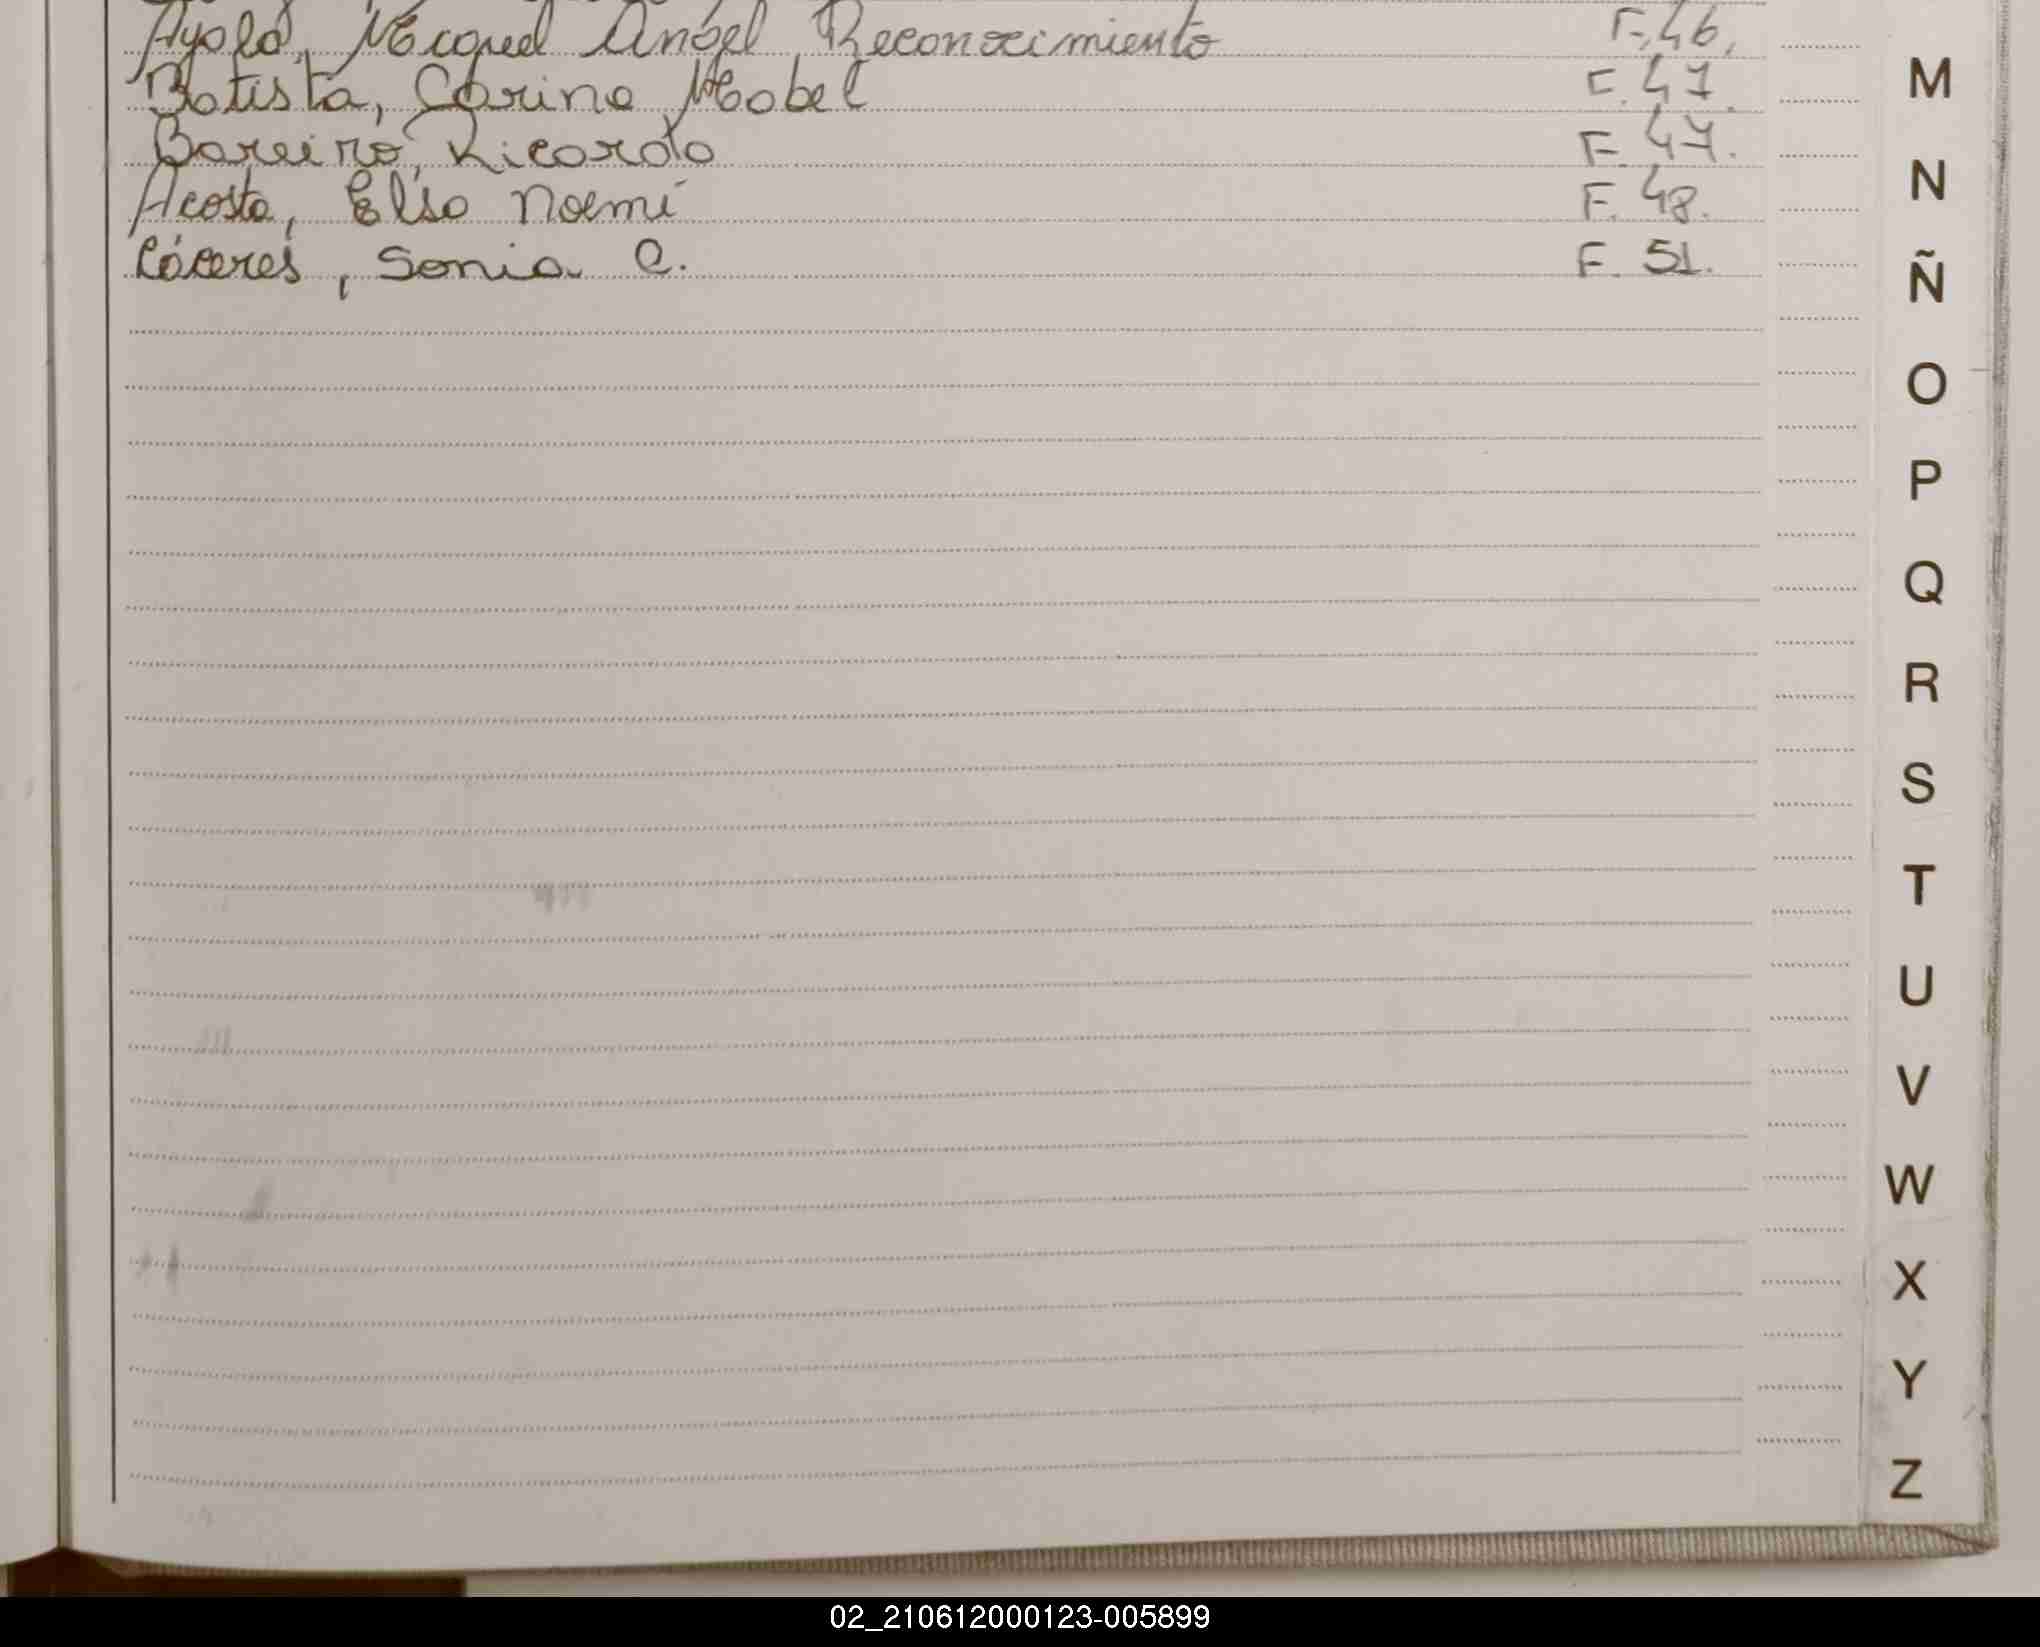 Ayala, Miguel Angel Reconocimiento F. 46.
Batista, Carina Mabel F. 47.
Bareiro, Ricardo F. 47.
Acosta, Elsa Noemí F. 48.
Cáceres, Sonia C. F. 51.
M
N
Ñ
O
P
Q
R
S
T
U
V
W
X
Y
Z
02_210612000123-005899